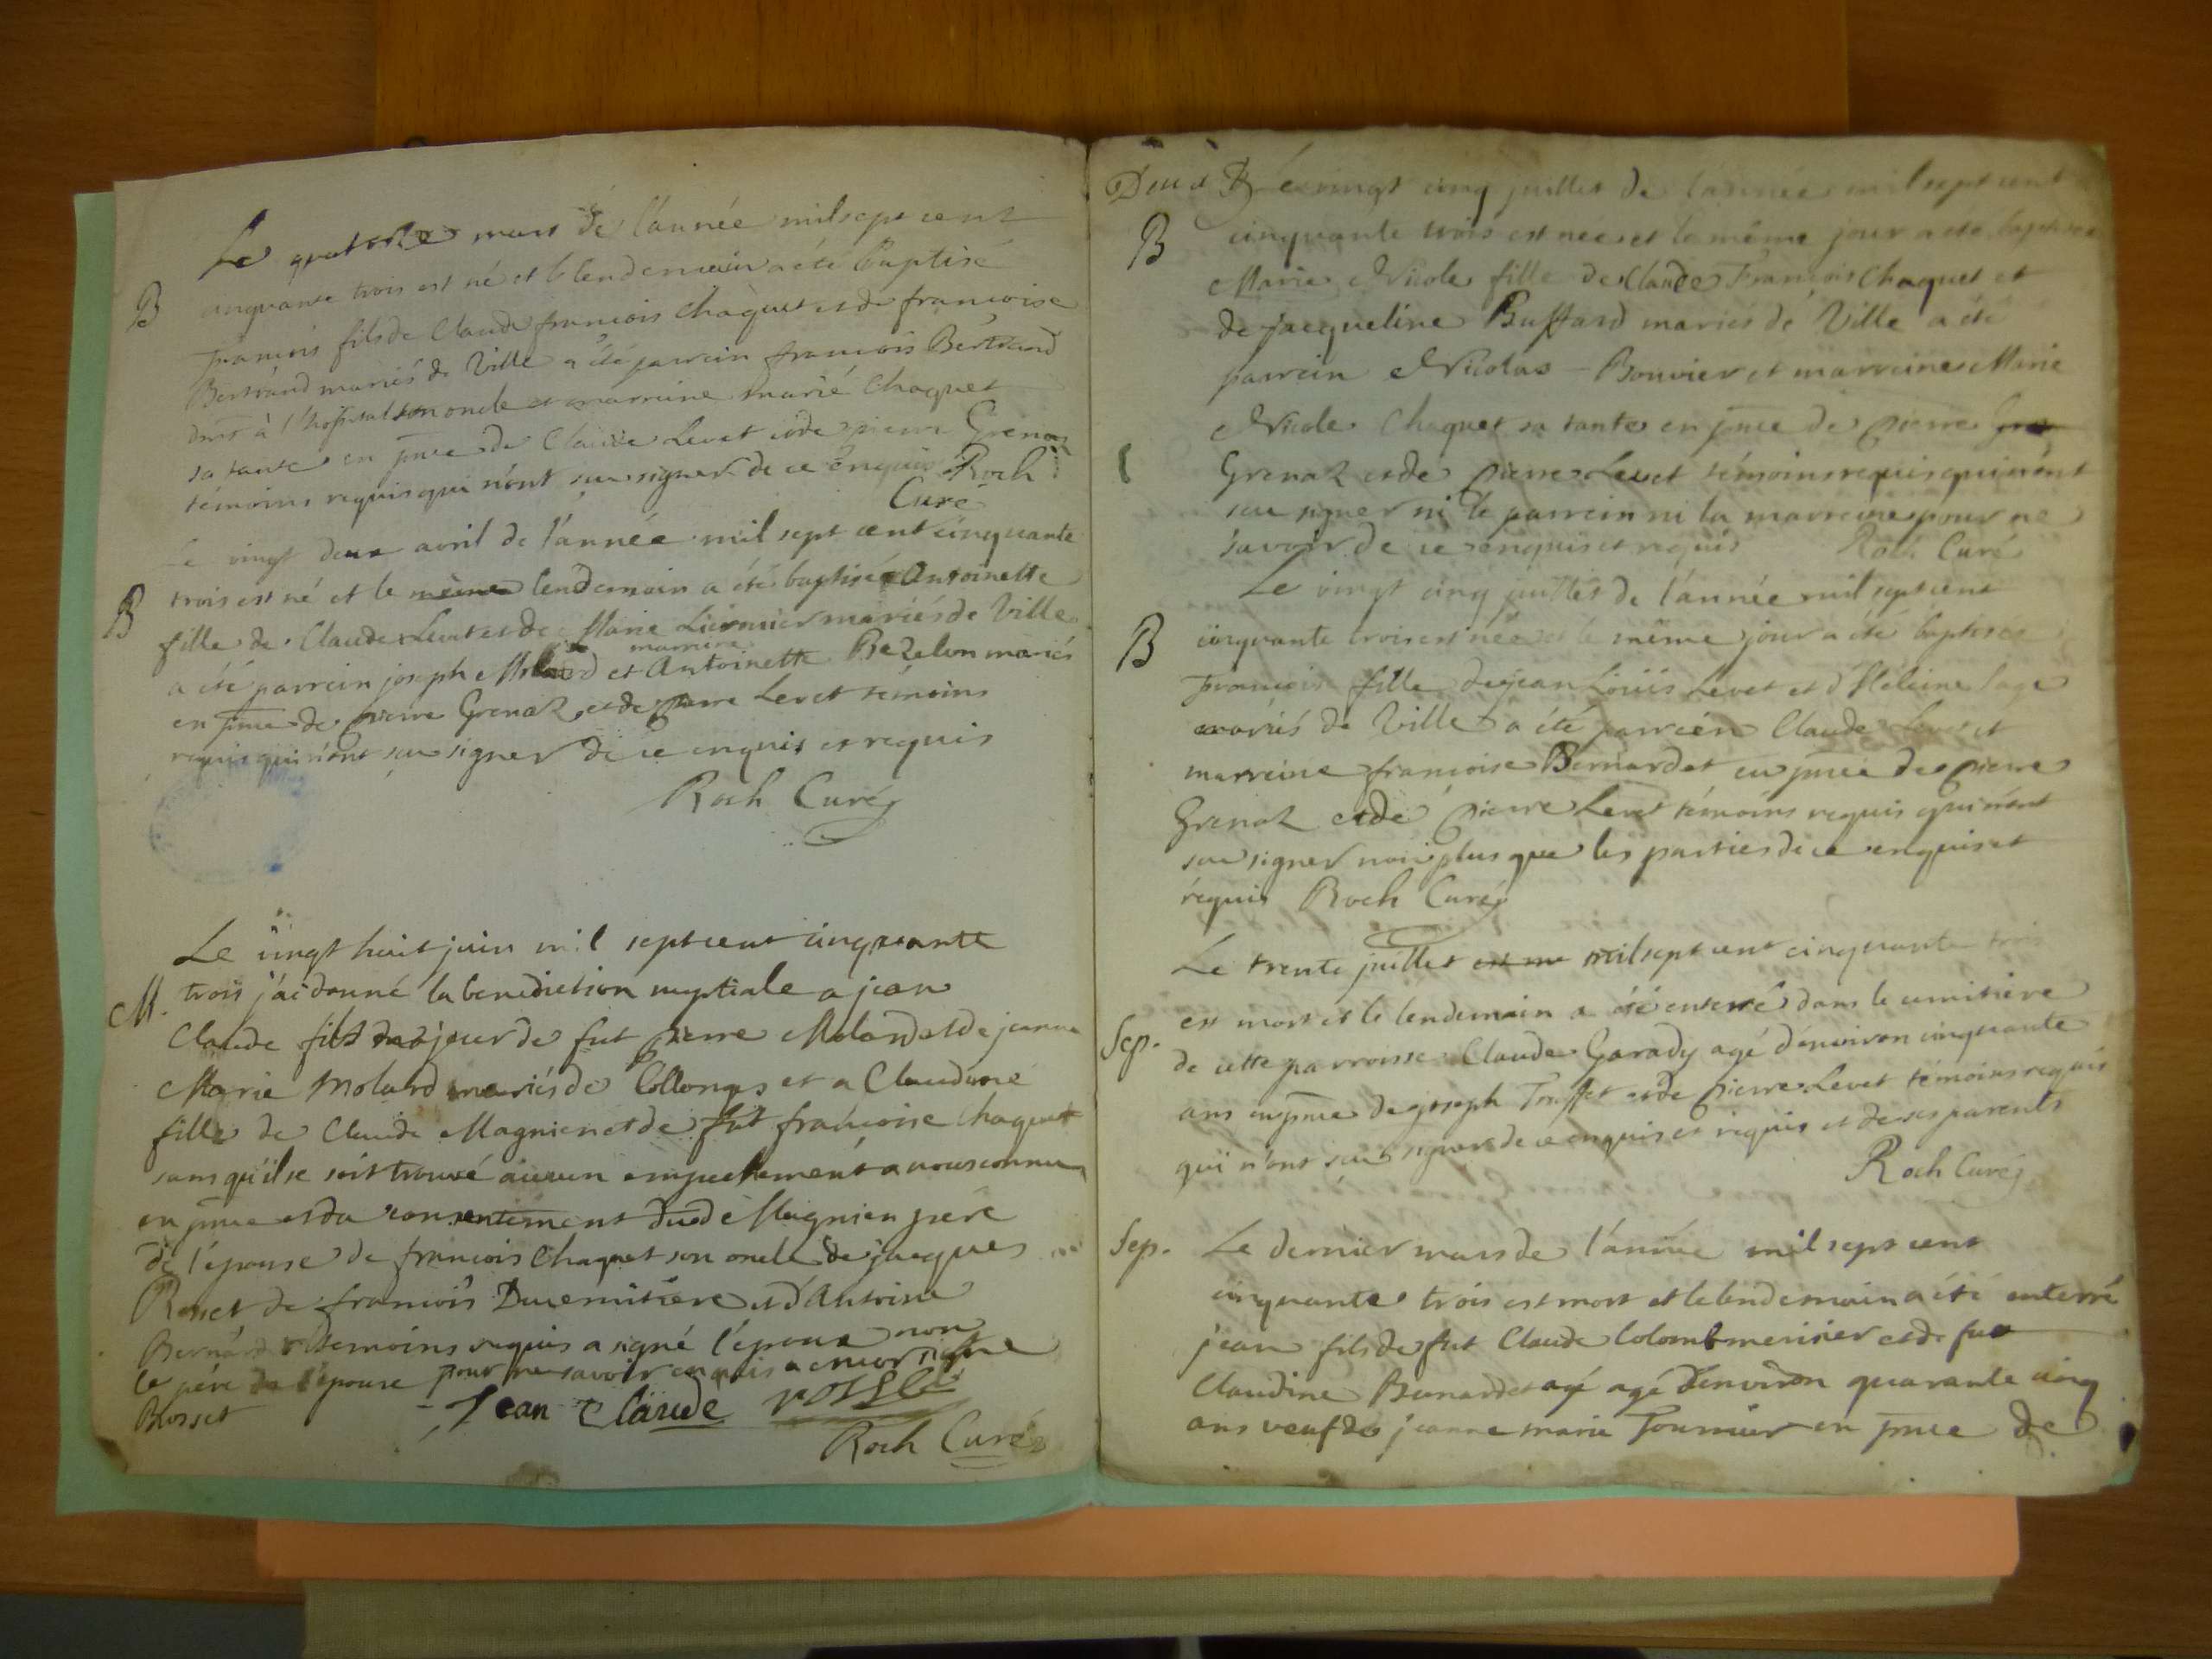 Le quatorze mars de l'année mil sept cent
B cinquante trois est né et le lendemain a été baptisé
francois fils de Claude francois Chaquet et de francoise
Bertrand mariés de Ville a été parrein francois Bertrand
à l'hopital son oncle et marreine marie Chaquet
sa tante en pnce de Claude Levet et de pierre Grenaz
témoins requis qui n'ont scu signer de ce enquis Roch
Curé
Le vingt deux avril de l'année mil sept cent cinquante
B trois est né et le même lendemain a été baptisée Antoinette
fille de Claude Levet et de Marie mariés de Ville
marreine
a été parrein joseph et Antoinette Bezelon mariés
en pnce de pierre Grenaz et de pierre Levet témoins
requis qui n'ont scu signer de ce enquis et requis
Roch Curé
Le vingt huit juin mil sept cent cinquante
M. trois j'ai donné la benediction nuptiale a jean
Claude fils majeur de fut pierre Molard et de jeanne
Marie Molard mariés de Collonges et a Claudine
fille de Claude Magnien et de fut francoise Chaquet
sans qu'il se soit trouvé aucun empechement a nous connu
en pnce et du consentement dud Magnien père
de l'épouse de francois Chaquet son oncle de jacques
Rosset de francois Ducimitiere et d'Antoine
Bernard temoins requis a signé l'époux non
le père de l'épouse pour ne savoir enquis
Rosset
Jean Claude rosset
Roch Curé
Deux B Le vingt cinq juillet de l'année mil sept cent
B cinquante trois est nee et le même jour a été baptisée
Marie Nicole fille de Claude François Chaquet et
de jacqueline Buffard mariés de Ville a été
parrein Nicolas - Bouvier et marreine Marie
Nicole Chaquet sa tante en pnce de pierre Gre
Grenaz et de pierre Levet témoins requis qui n'ont
scu signer ni le parrein ni la marreine pour ne
savoir de ce enquis et requis Roch Curé
Le vingt cinq juillet de l'année mil sept cent
B cinquante trois est née et le même jour a été baptisée
francoise fille de jean Louis Levet et d'Héleine Sage
mariés de Ville a été parrein Claude Levet et
marreine francoise Bernardet en pnce de pierre
Grenaz et de pierre Levet témoins requis qui n'ont
scu signer non plus que les parties de ce enquis et
réquis Roch Curé
Le trente juillet est ne mil sept cent cinquante trois
Sep. est mort et le lendemain a été enterré dans le cimitière
de cette parroisse Claude Garady agé d'environ cinquante
ans en pnce de joseph Truffet et de pierre Levet témoins requis
qui n'ont scu signer de ce enquis et requis et de ses parents
Roch Curé
Sep. Le dernier mars de l'année mil sept cent
cinquante trois est mort et le lendemain a été enterré
jean fils de fut Claude Colomb et de fut
Claudine Bernardet agé agé d'environ quarante cinq
ans veuf de jeanne marie Fournier en pnce de